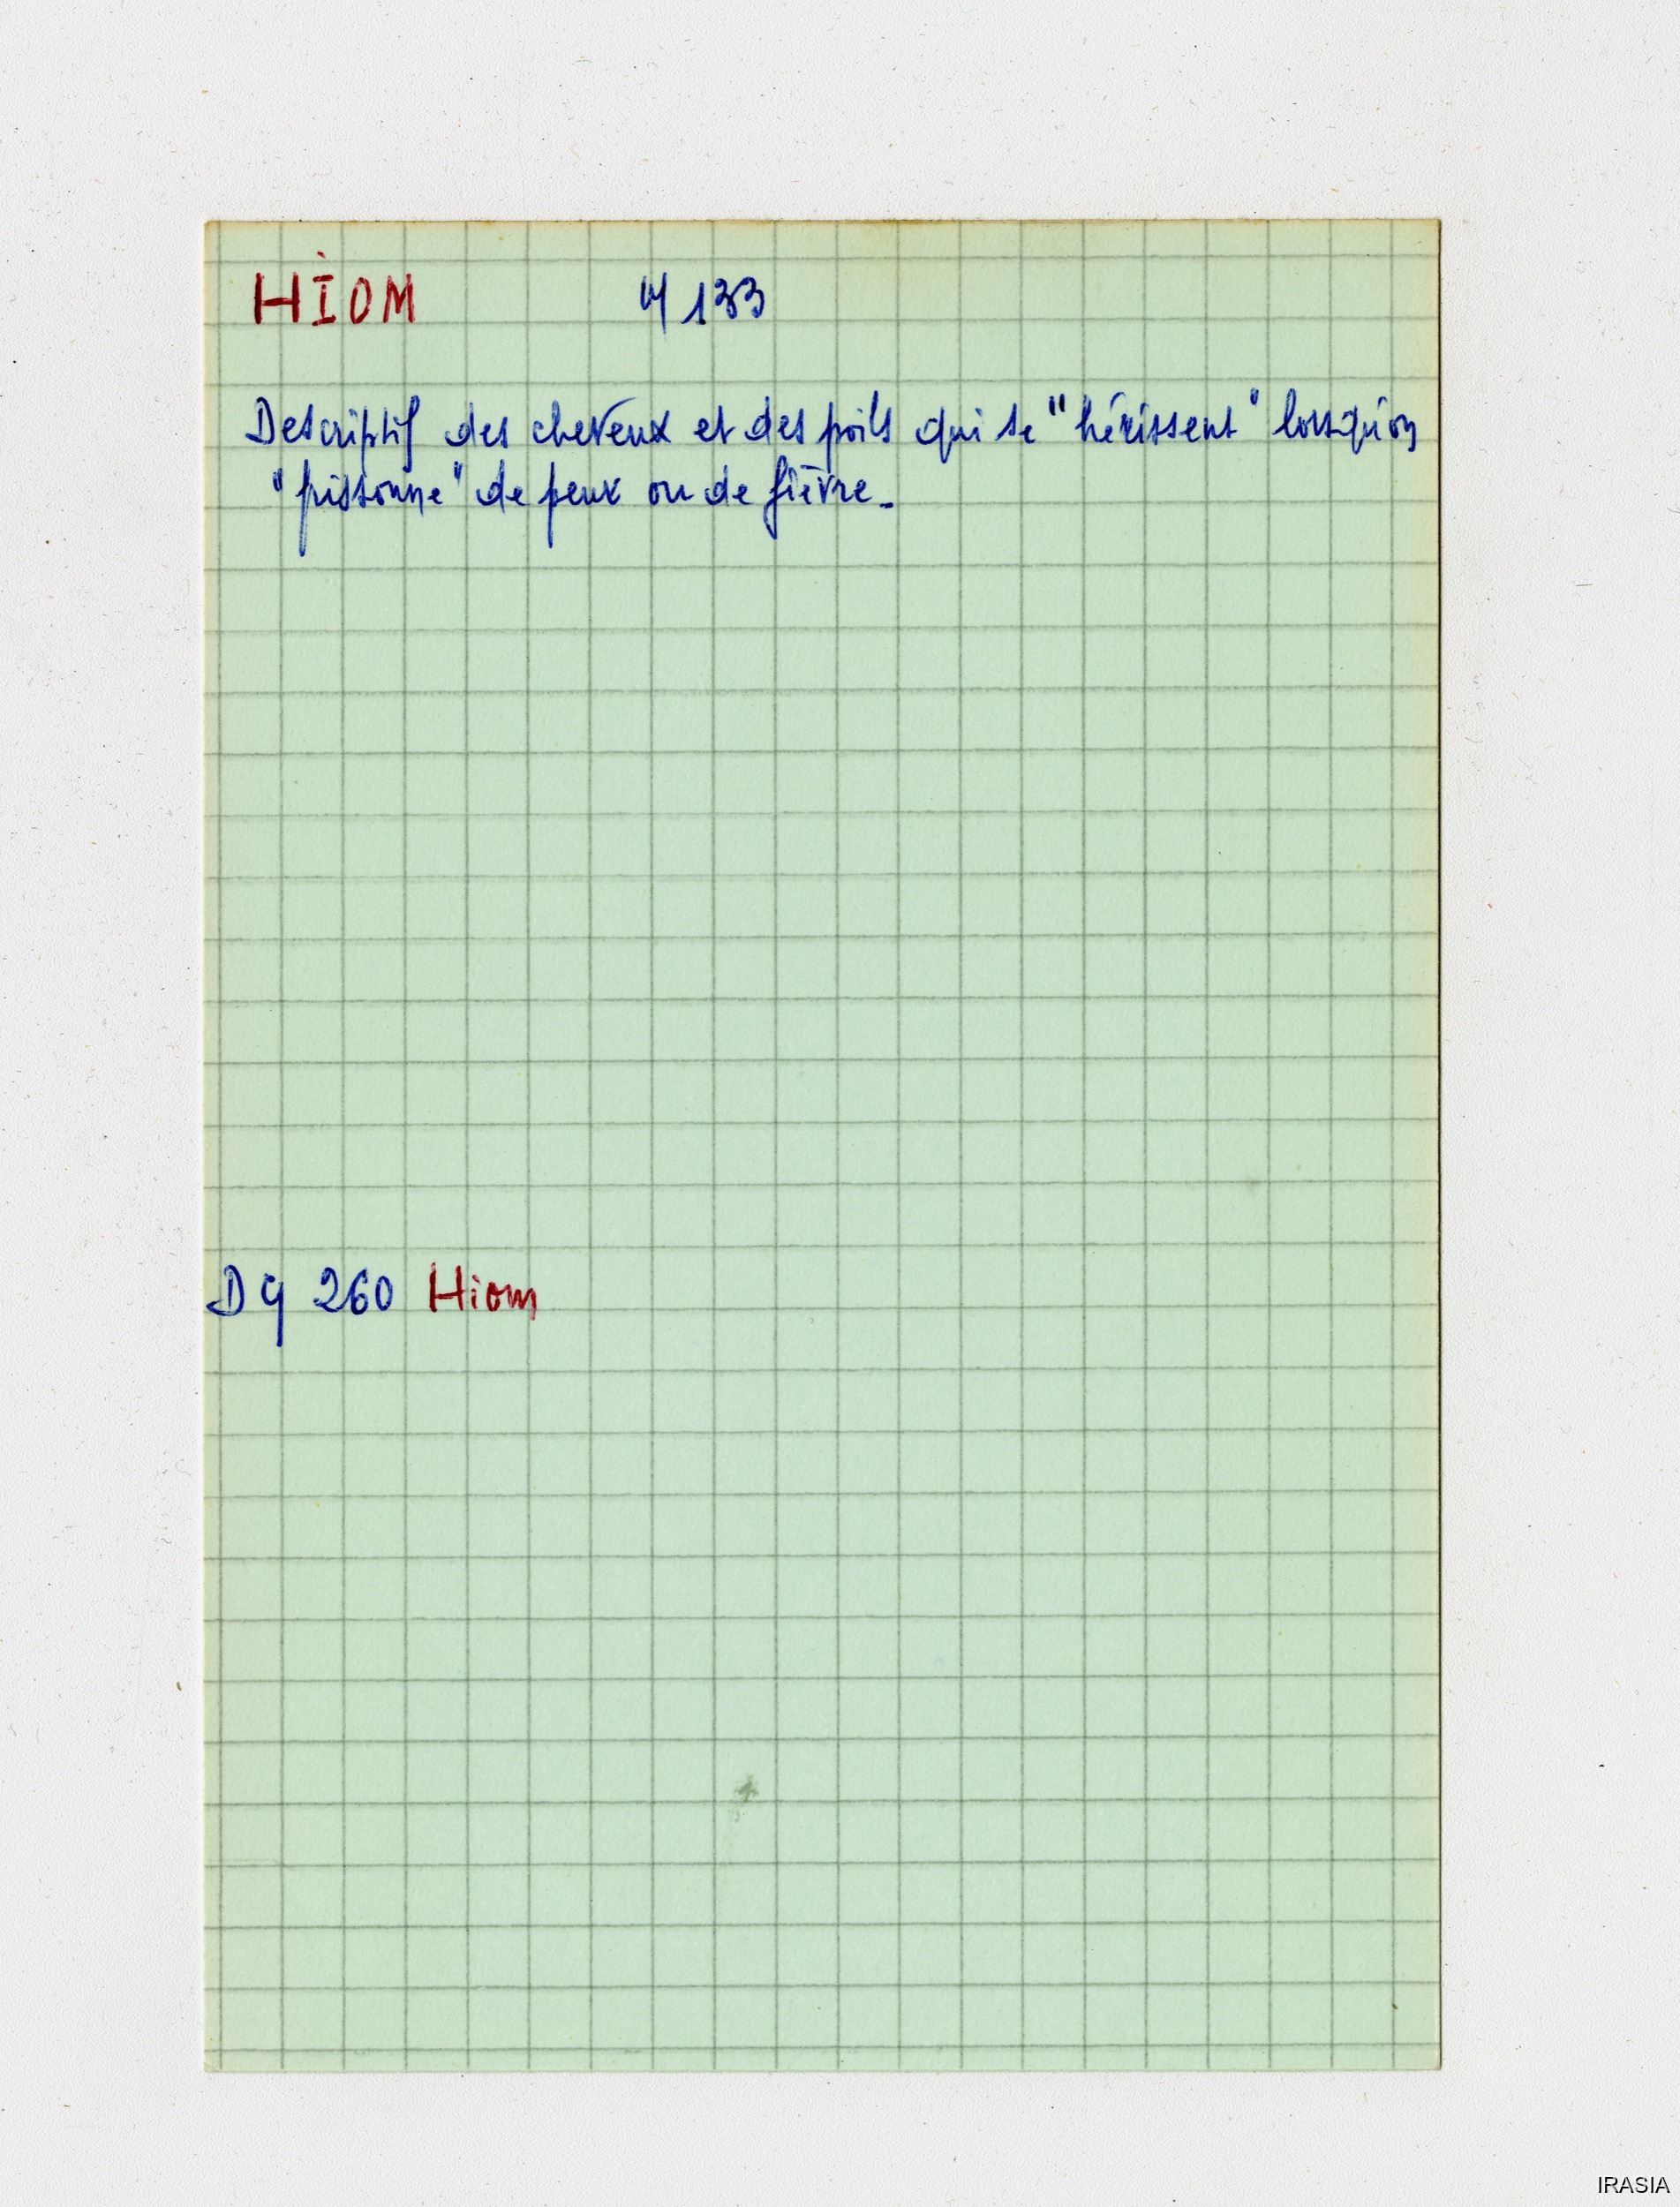 HİOM 4 133
Descriptif des cheveux et des poils qui se "hérissent" lorsqu'on
"frissonne" de peur ou de fièvre.
D 9 260 Hiom
IRASIA